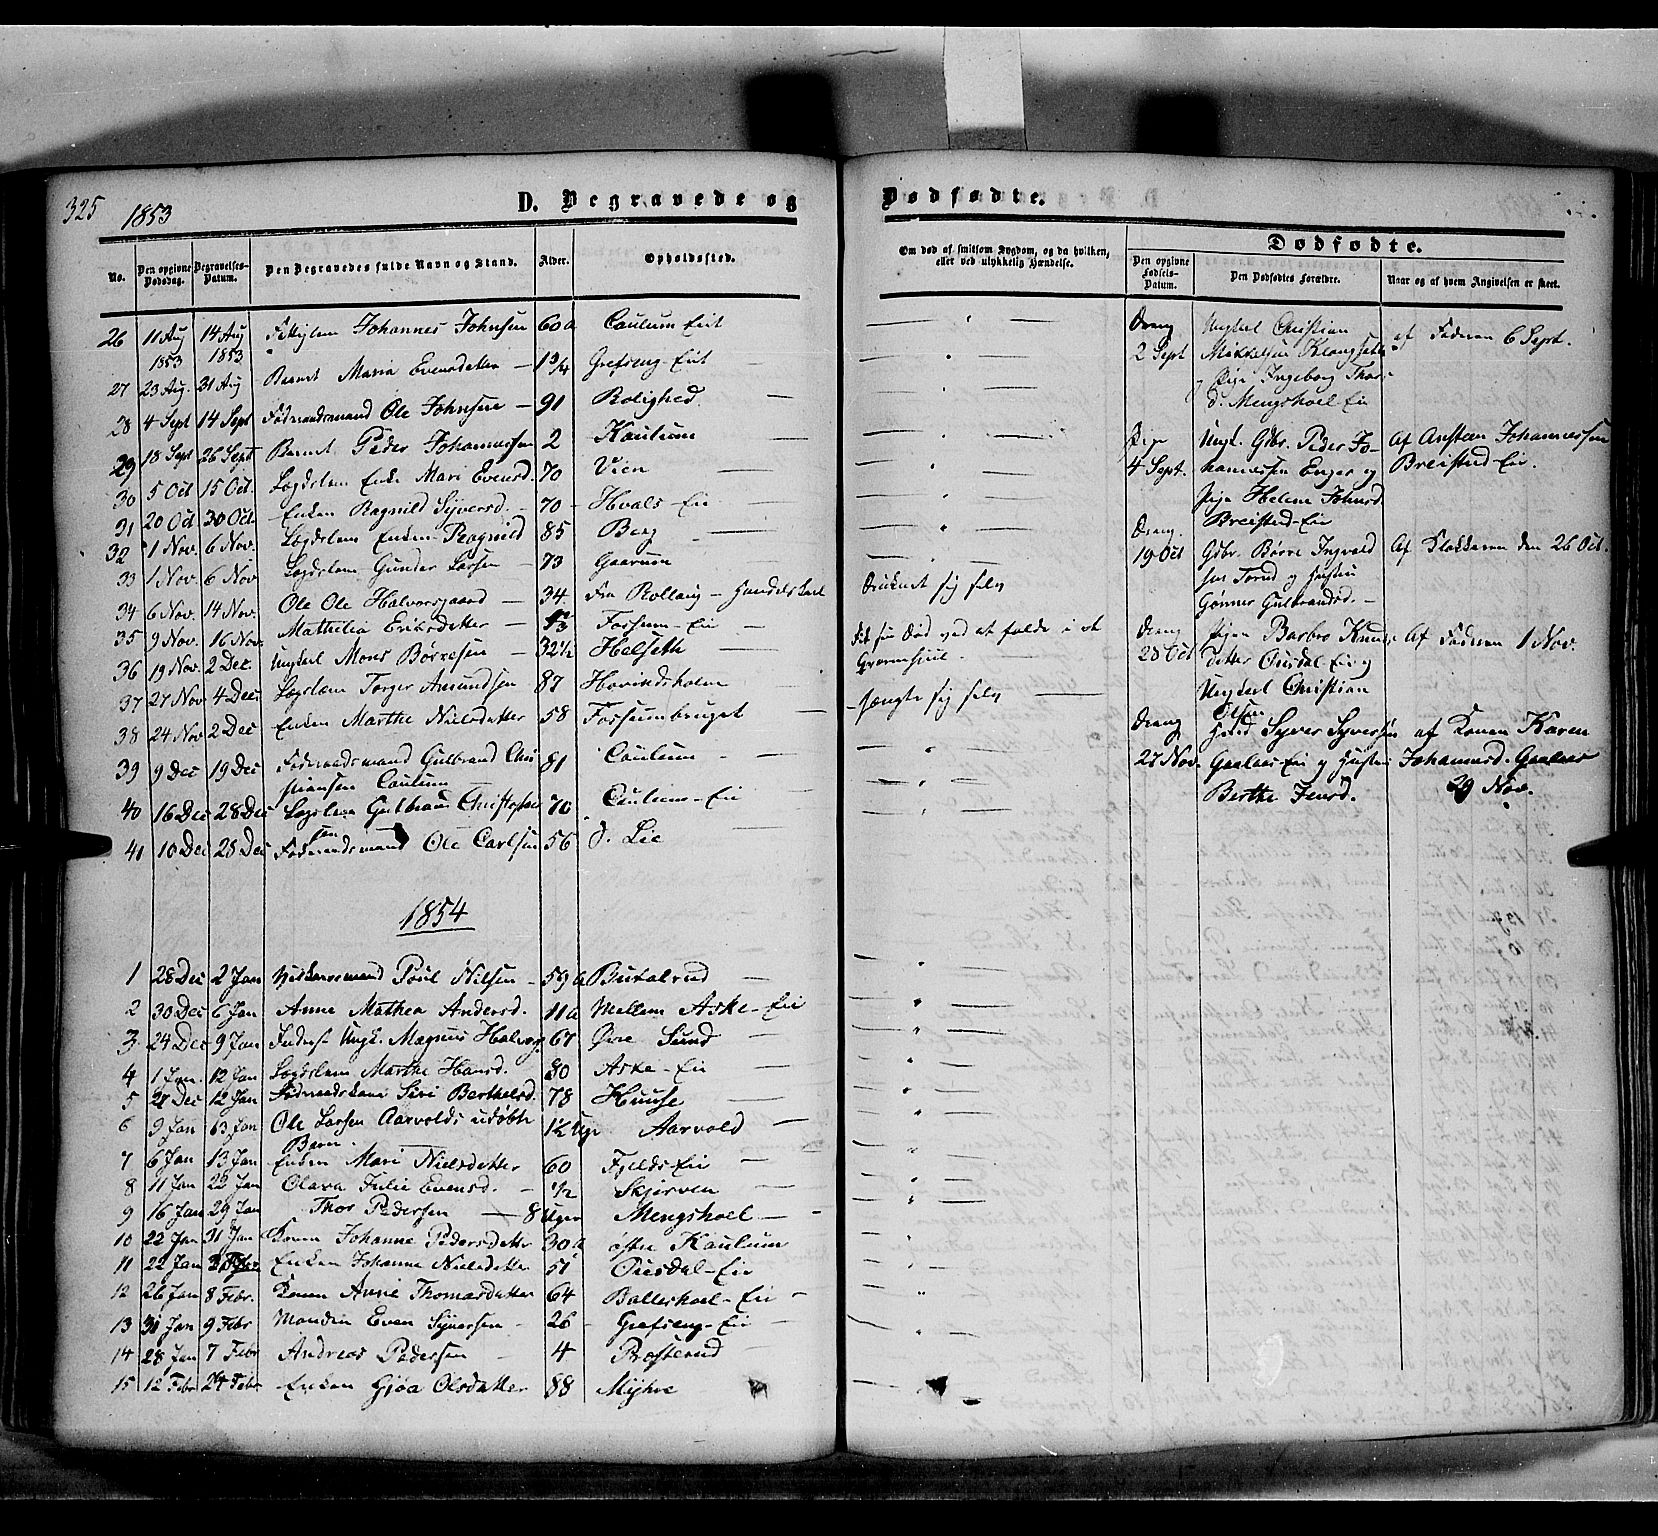 325 1853 D. Begravede og Dødfødte.
No. Den opgivne Dødsdag. Begravelses-Datum. Den Begravedes fulde Navn og Stand. Alder. Opholdssted.
Om død af smitsom Sygdom, og da hvilken, eller ved ulykkelig Hændelse.
Dødfødte.
Den opgivne Fødsels-Datum. Den Dødfødtes Forældre. Naar og af hvem Angivelsen er skeet.
26 11 Aug 1853 14 Aug 1853 Johannes Johnsen 60 a Caulum Eit
27 23 Aug. 31 Aug Barnet Maria Evensdatter 1 3/4 Grefseng-Eit
28 4 Sept 14 Sept Føderaadsmand Ole Johnsen 91 Rolighed
29 18 Sept 26 Sept Barnet Peder Johannessen 2 Kaulum
30 5 Oct 15 Oct. Lægdslem Enke Mari Evensd. 70 Vien
31 20 Oct 30 Oct. Enken Ragnild Syversd. 70 Hvals-Eie
32 1 Nov. 6 Nov. Lægdslem Enken Ragnild 85 Berg
33 1 Nov. 6 Nov Lægdslem Gunder Larsen 73 Gaarum
34 6 Nov. 14 Nov. Ole Ole Halvorsgaard 34 Fra Rollaug - Handelskarl Druknet sig selv
35 9 Nov. 16 Nov. Mathilia Eriksdatter Fossum-Eie
36 19 Nov. 2 Dec. Ungkarl Mons Børresen 32 1/2 Helseth fik sin Død ved at falde i et
37 27 Nov 4 Dec. Lægslem Torger Amundsen 87 Hovindsholm
38 24 Nov 2 Dec Enken Marthe Nielsdatter 58 Fossumbruget hængte sig selv
39 9 Dec 19 Dec Føderaadsmand Gulbrand Chri
stiansen Caulum 81 Caulum
40 16 Dec 28 Dec Lægslem Gulbrand Christophersen 70 Caulum-Eie
41 10 Dec 28 Dec Føderaadsmand Ole Carlsen 56 Lie
Dreng Ungkarl Christian
2 Sept Mikkelsen Klangseth af Faderen 6 Sept.
og Pige Ingeborg Thor
d. Mengshoel-Eie
Pige Ungk. Gdbr. Peder Jo- Af Ansteen Johannessen
4 Sept. hannessen Enger og Breisted-Eie.
Pige Helene Johnsd
Breisted-Eie
Dreng
19 Oct Gdbr. Børre Ingvald Af Klokkeren den 26 Oct.
sen Torud og Hustru
Gønner Gulbrandsd.
Dreng Pigen Barbro Knuds Af Faderen 1 Nov.
28 Oct datter Ousdal-Eie og
Ungkarl Christian
Olsen
Dreng Syver Syversen af Konen Karen
27 Nov. Gaalaas-Eie og Hustru Johannesd. Gaalaas
Berthe Jensd. 29 Nov.
1854
1 28 Dec 2 Jan Poul Nilsen 59 a
2 30 Dec 6 Jan Anne Mathea Andersd. 11 a Mellem Aske-Eie
3 24 Dec 9 Jan Ungk. Magnus Halvors 67 Øvre Sund
4 1 Jan. 12 Jan Lægdslem Marthe Hansd. 80 Aske-Eie
5 27 Dec 12 Jan Føderaadskone Siri Berthelsd. 78 Huuse
6 9 Jan 13 Jan Ole Larsen Aarvolds udøbte
Barn. 1 1/2 Uge Aarvold
7 6 Jan 13 Jan Enken Mari Nielsdatter 60 Fjelds-Eie
8 11 Jan 22 Jan Olava Julie Evensd. 1/2 Skjerven
9 16 Jan 29 Jan Thor Pedersen 8 Uger Mengshoel
10 22 Jan 31 Jan Konen Johanne Pedersdatter 30 a østre Kaulum
11 22 Jan Enken Johanne Nielsdatter 51 Ousdal-Eie
12 26 Jan 8 Febr. Konen Anne Thomasdatter 64 Balleshoel-Eie
13 31 Jan 9 Febr Manden Even Syversen 26 Grefseng-Eie
14 28 Jan 7 Febr Andreas Pedersen 4 Præsterud
15 12 Febr 24 Febr. Enken Gjøa Olsdatter 88 Myhre